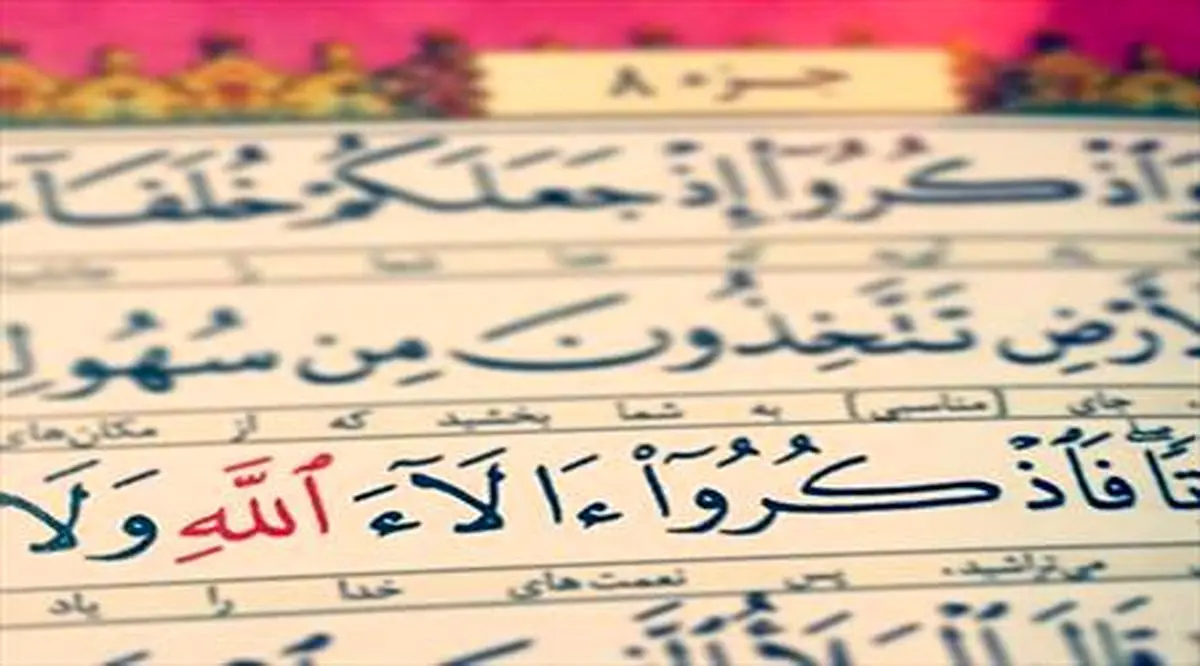 جزء ۸
وَٱذْكُرُوٓا۟ إِذْ جَعَلَكُمْ خُلَفَآءَ
ٱلْأَرْضِ تَتَّخِذُونَ مِن سُهُولِ
جای (مناسبی) به شما بخشید که از مکان‌های
فَٱذْكُرُوٓا۟ ءَالَآءَ ٱللَّهِ وَلَا
می‌تراشید. پس نعمت‌های خدا را یاد
قَالَ ٱلْمَلَأُ ٱلَّذِينَ